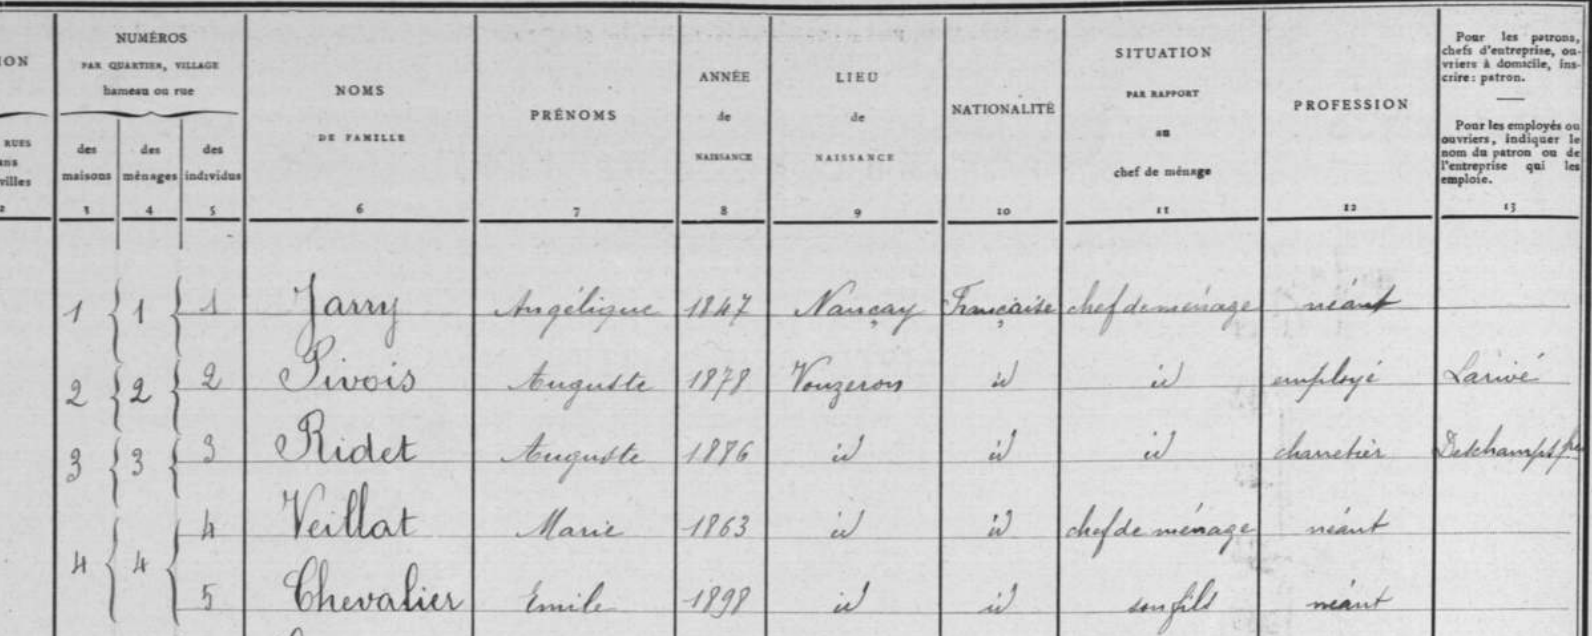 NUMÉROS
PAR QUARTIER, VILLAGE
hameau ou rue
des maisons
des ménages
des individus
NOMS
DE FAMILLE
PRÉNOMS
ANNÉE
de
NAISSANCE
LIEU
de
NAISSANCE
NATIONALITÉ
SITUATION
PAR RAPPORT
au
chef de ménage
PROFESSION
Pour les patrons,
chefs d'entreprise, ou-
vriers à domicile, ins-
crire : patron.
Pour les employés ou
ouvriers, indiquer le
nom du patron ou de
l'entreprise qui les
emploie.
2 3 4 5 6 7 8 9 10 11 12 13
1 1 1 Jarry Angélique 1847 Nançay Française chef de ménage néant
2 2 2 Pivois Auguste 1878 Vouzeron id id employé Larivé
3 3 3 Ridet Auguste 1876 id id id charretier Deschamps
4 Veillat Marie 1863 id id chef de ménage néant
4 4
5 Chevalier Emile 1898 id id son fils néant